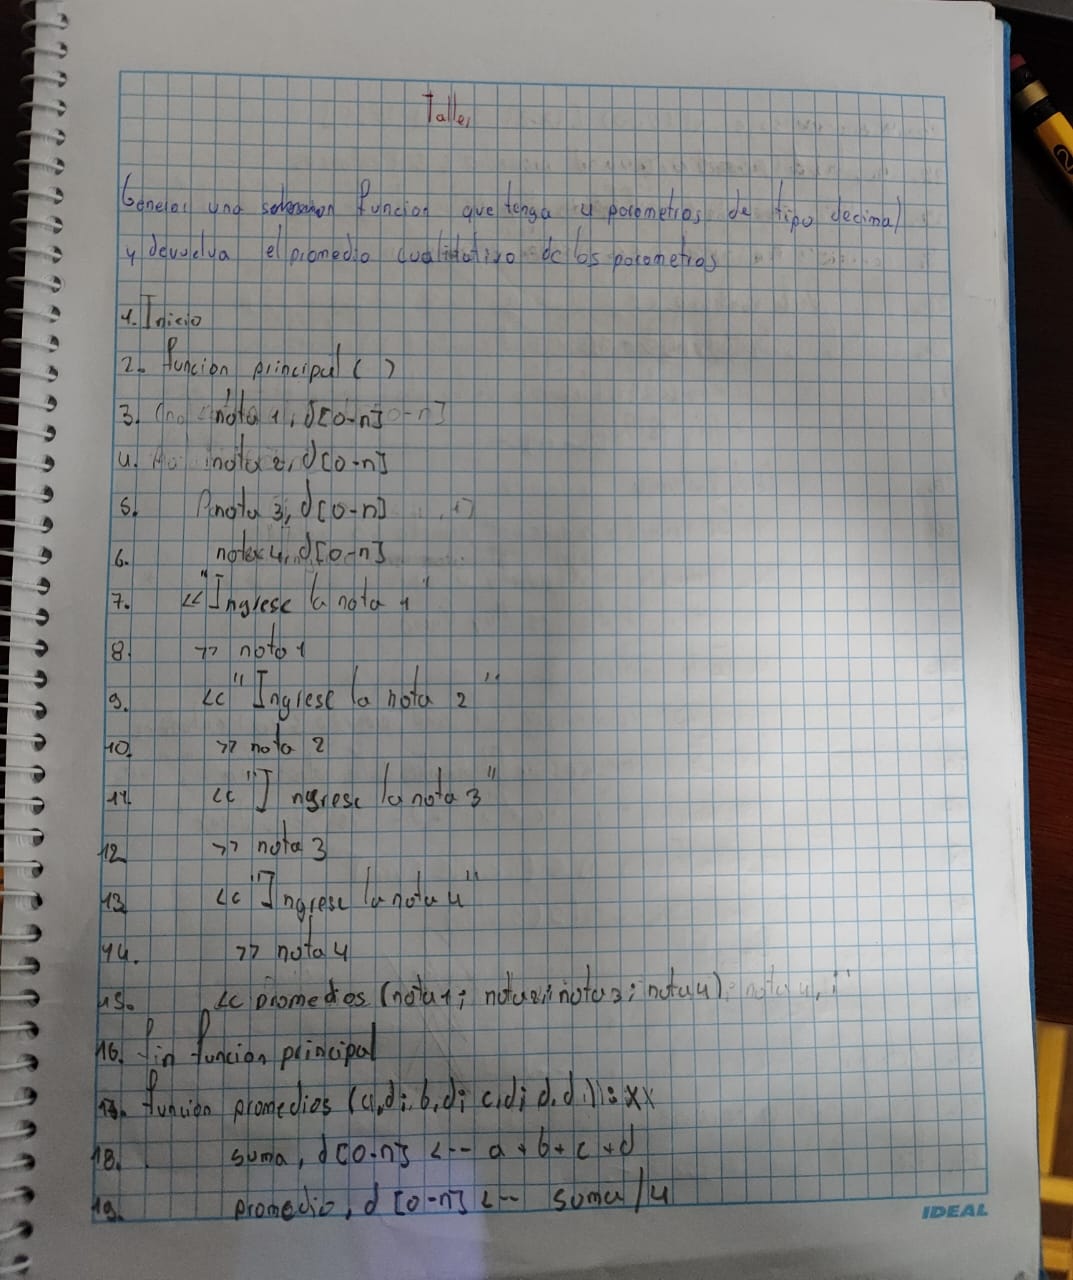 Taller
Generar una funcion que tenga 4 parametros de tipo decimal
y devuelva el promedio cualitativo de los parametros
1. Inicio
2. funcion principal ( )
3. nota 1, d[0-n]
4. nota 2, d[0-n]
5. nota 3, d[0-n]
6. nota 4, d[0-n]
7. << "Ingrese la nota 1"
8. >> nota 1
9. << "Ingrese la nota 2"
10. >> nota 2
11. << "Ingrese la nota 3"
12. >> nota 3
13. << "Ingrese la nota 4"
14. >> nota 4
15. << promedios (nota 1; nota 2; nota 3; nota 4)
16. fin funcion principal
17. funcion promedios (a,d; b,d; c,d; d,d.) : xx
18. suma, d[0-n] <-- a + b + c + d
19. promedio, d [0-n] <-- suma / 4
IDEAL